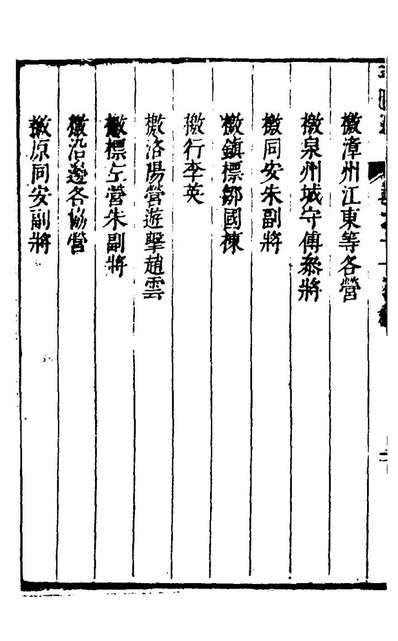 檄漳州江東等各營
檄泉州城守傅叅將
檄同安朱副將
檄鎮標鄒國棟
檄行李英
檄洛陽營遊擊趙雲
檄標左營朱副將
檄沿邊各協營
檄原同安副將